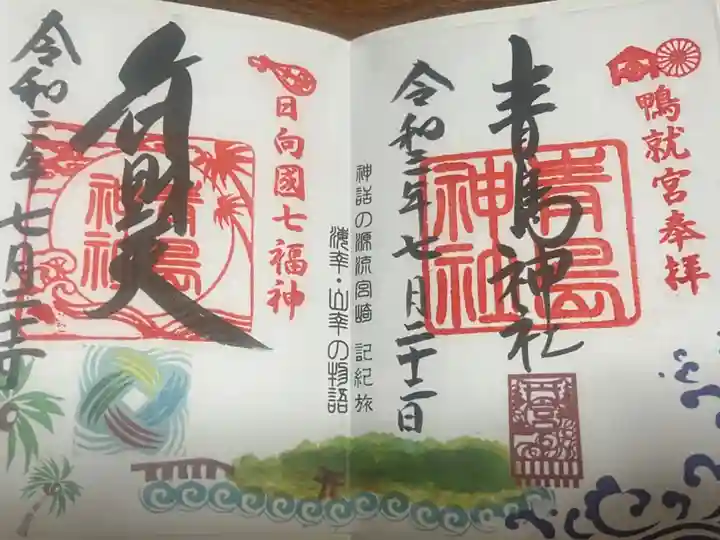 鴨就宮奉拝
青島神社
青島
神社
令和二年七月二十二日
神話の源流宮崎 記紀旅
海幸・山幸の物語
日向國七福神
弁財天
青島
神社
令和二年七月二十